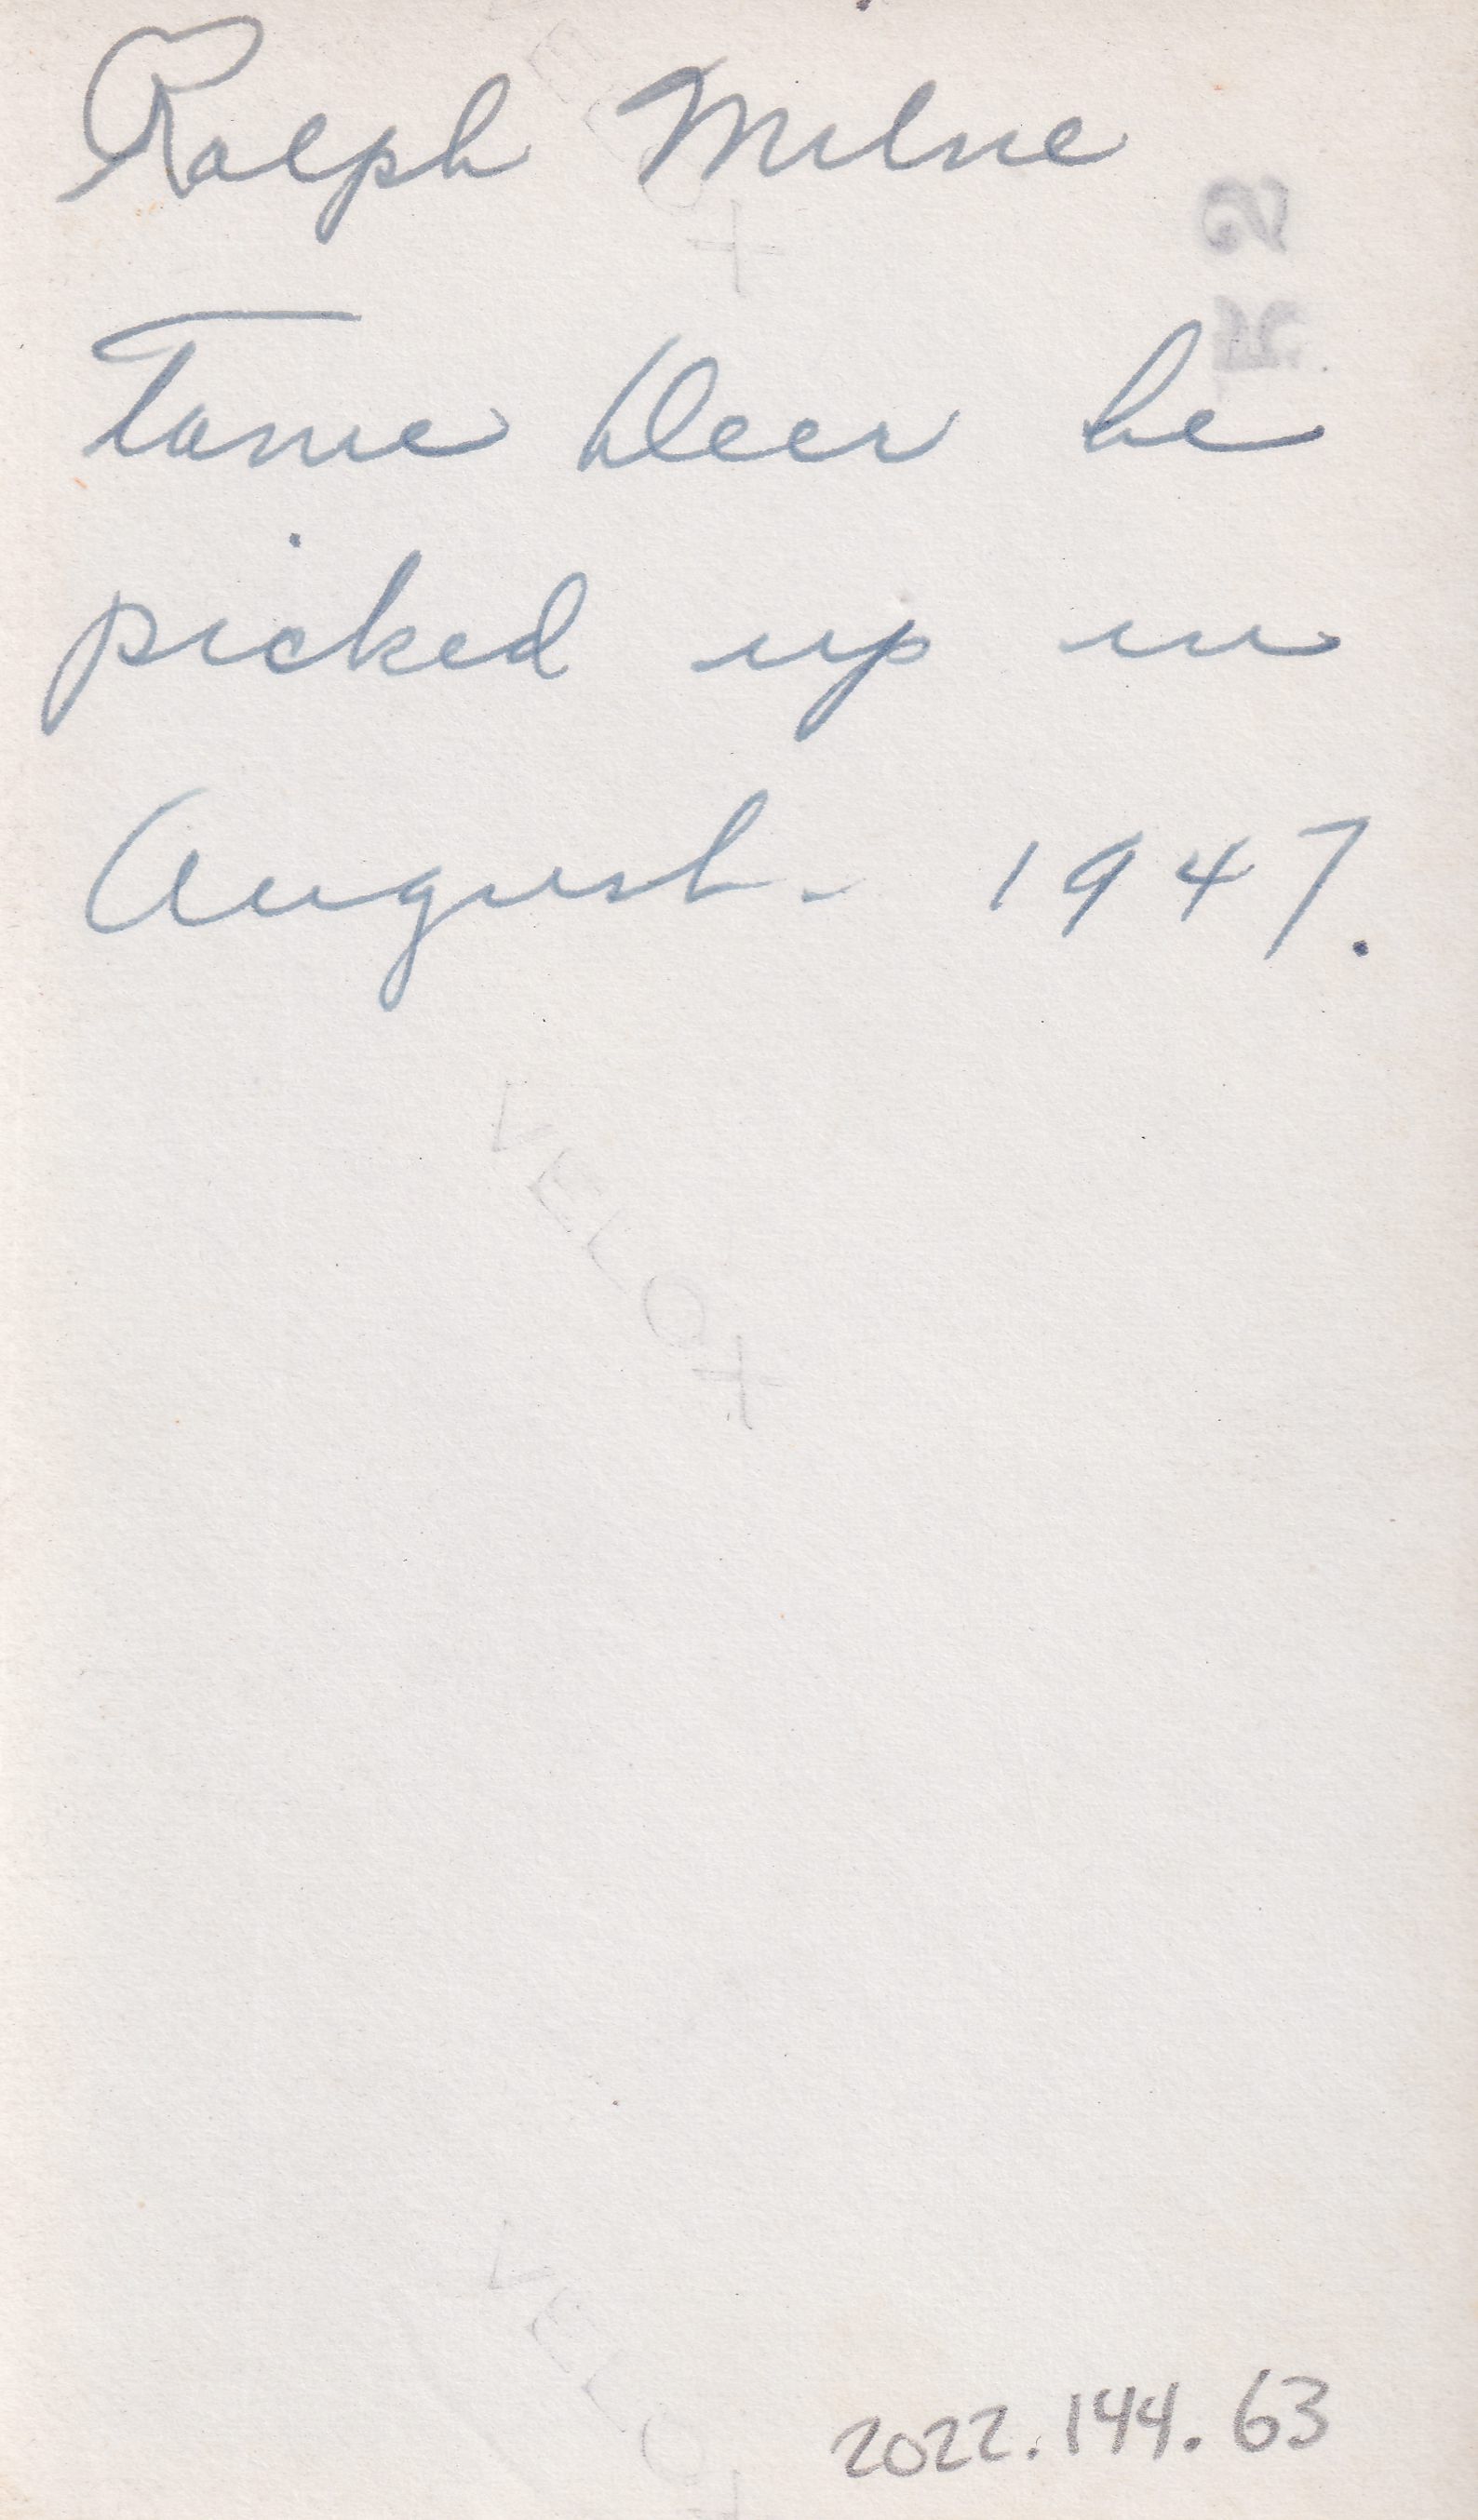 Ralph Milne
Tame Deer he
picked up in
August - 1947.
VELOX
VELOX
VELOX
2022.144.63